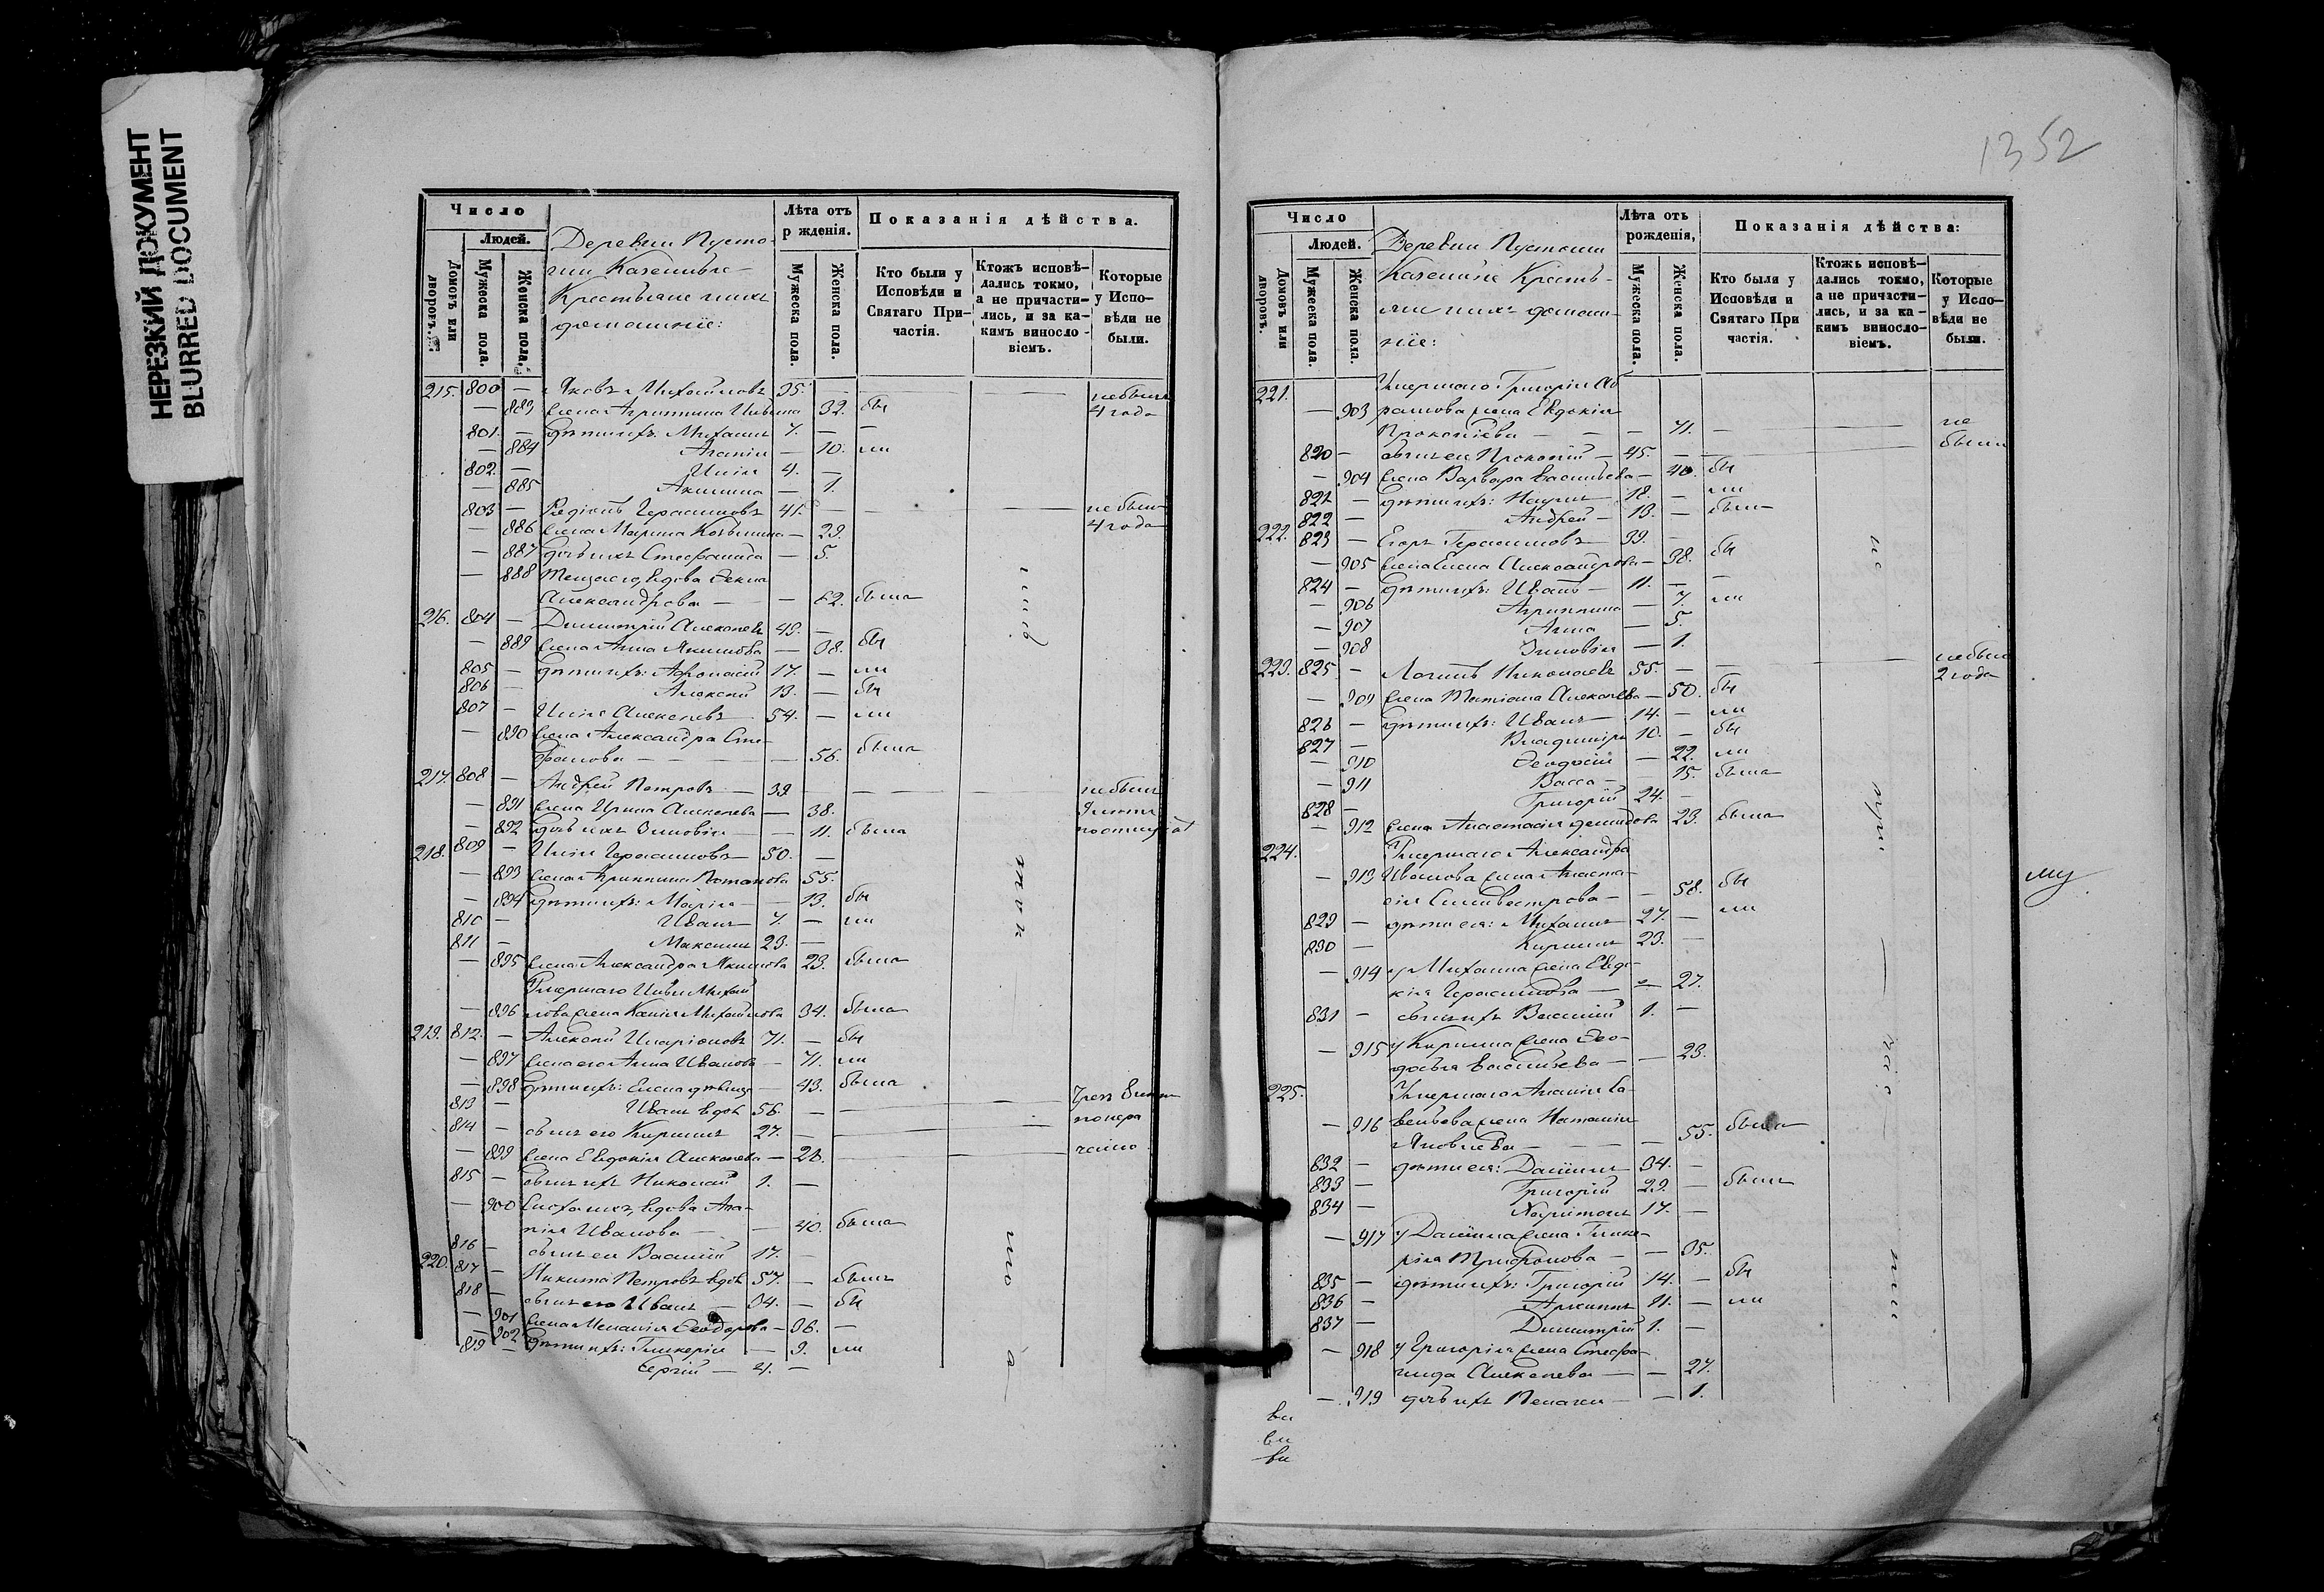 НЕРЕЗКИЙ ДОКУМЕНТ
BLURRED DOCUMENT
Число
Людей.
Домовъ или дворовъ.
Мужеска пола.
Женска пола.
Деревни Пусто-
Казенные
Крестьяне и ихъ
домашніе:
Лѣта отъ
р жденія.
Мужеска пола.
Женска пола.
Показанія дѣйства.
Кто были у
Исповѣди и
Святаго При-
частія.
Ктожъ исповѣ-
дались токмо,
а не причасти-
лись, и за ка-
кимъ винослo-
віемъ.
Которые
у Испо-
вѣди не
были.
215. 800 — Яковъ Михайловъ 35. — не былъ
— 883 жена Агрипина 32. бы 4 года
801. — дѣти ихъ: Михаилъ 7. — —
— 884 — 10. ли
802. — Илія 4. —
— 885 Акилина — 1.
803 — Герасимовъ 41. — не былъ
— 886 жена Марина — 29. 4 года
— 887 дочь ихъ Стефанида — 5.
— 888 Теща его, вдова Ѳекла
Александрова — — 62. была
216. 804 — Димитрій Алексѣевъ 49. —
— 889 жена Анна Якимова — 38. бы
805 — дѣти ихъ: Афонасій 17. — ли
806 — Алексѣй 13. — бы
807 — Илія Алексѣевъ 54. — ли
— 890 жена Александра Сте-
фанова — — 56. была
217. 808 — Андрей Петровъ — 39 — не былъ
— 891 жена Ирина Алексѣева — 38.
— 892 дочь ихъ Зиновія — — 11. была
218. 809 — Илія Герасимовъ 50. —
— 893 жена Потапова 55.
— 894 дѣти ихъ: Марія — — 13. бы
810 — Иванъ 7. — ли
811 — Максимъ 23. —
— 895 жена Александра Якимова 23. была
Умершаго Михай-
— 896 лова жена Михайлова 34. была
219. 812. — Алексѣй Иларіоновъ 71. — бы
— 897 жена его Анна Иванова — 71. ли
— 898 дѣти ихъ: Елена дѣвица — 43. была
813 — Иванъ вдов 56. —
814 — сынъ его Кирилъ 27. —
— 899 жена Евдокія Алексѣева — 26.
815 — сынъ ихъ Николай 1. —
— 900 вдова Ана-
нія Иванова — — 40. была
816 — сынъ ея Василій 17. —
220. 817 — Никита Петровъ вдов 57. — былъ
818 — сынъ его Иванъ — 34. — бы
— 901 жена Меланія Ѳеодорова — 36. —
— 902 дѣти ихъ: Гликерія — 9. ли
819 — Сергій — 4. —
1352
Число
Людей.
Домовъ или дворовъ.
Мужеска пола.
Женска пола.
Деревни Пустоши
Казенные Кресть-
яне и ихъ домаш-
ніе:
Лѣта отъ
рожденія,
Мужеска пола.
Женска пола.
Показанія дѣйства:
Кто были у
Исповѣди и
Святаго При
частія.
Ктожъ исповѣ-
дались токмо,
а не причасти-
лись, и за ка-
кимъ винослo-
віемъ.
Которые
у Испо-
вѣди не
были.
221. Умершаго Григорія Аб
— 903 рамова жена Евдокія
Прокопіева — — — 71. — не
820 — сынъ ея Прокопій — 45. — были
— 904 жена Варвара Васильева — 40. бы
821 — дѣти ихъ: Наумъ 18. — ли
822 — Андрей — 13. — былъ
222. 823 — Егоръ Герасимовъ 39. —
— 905 жена Елена Александрова — 38. бы
824 — дѣти ихъ: Иванъ — 11. — —
— 906 Агрипина — 7. ли
— 907 Анна — 5.
— 908 Зиновія — 1.
223. 825 — Логинъ Николаевъ 55. — не былъ
— 909 жена Татіана Алексѣева — 50. бы 2 года
826 — дѣти ихъ: Иванъ — 14. — ли
827 — Владиміръ 10. — бы
— 910 — 22. ли
— 911 Васса — 15. была
828 — Григорій 24. —
— 912 жена Анастасія Демидова 23. была
224. Умершаго Александра
— 913 Иванова жена Анаста-
сія Сильвестрова — — 58. бы
829 — дѣти ея: Михаилъ 27. — ли
830 — Кирилъ 23. —
— 914 у Михаила жена Евдо-
кія Герасимова — — 27.
831 — сынъ ихъ Василій 1. —
— 915 у Кирила жена Ѳео-
досія Васильева — — 23.
225. Умершаго Ананія Са-
— 916 вельева жена Наталія
Яковлева — — — 55. была
832 — дѣти ея: Даніилъ 34. —
833 — Григорій 29. — былъ
834 — Харитонъ 17. —
— 917 у Даніила жена Глике-
рія Трифонова — — 35.
835 — дѣти ихъ: Григорій 14. — бы
836 — 11. — ли
837 — Димитрій 1. —
— 918 у Григорія жена Стефа-
нида Алексѣева — — 27.
— 919 дочь ихъ Пелагія — — 1.
му